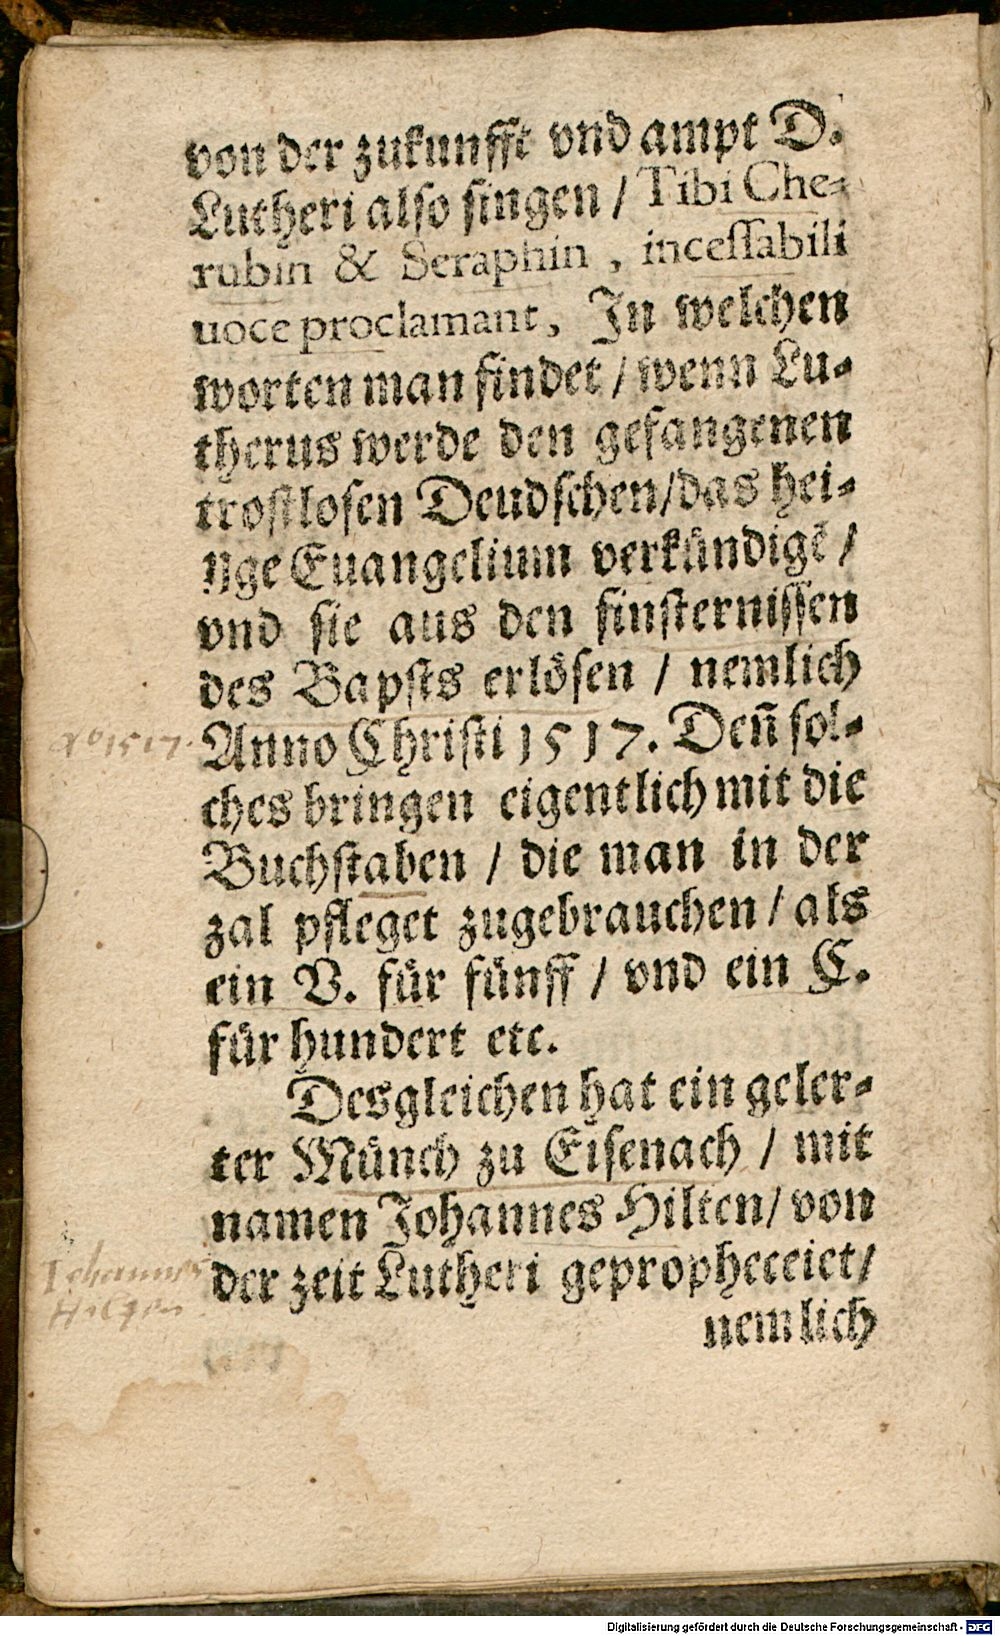 von der zukunfft vnd ampt D.
Lutheri also singen / Tibi Che-
rubin & Seraphin , incessabili
uoce proclamant, In welchen
worten man findet / wenn Lu-
therus werde den gefangenen
trostlosen Deudschen/das hei-
lige Euangelium verkündigē /
vnd sie aus den finsternissen
des Bapsts erlösen / nemlich
Aº 1517.
Anno Christi 1517. Deñ sol-
ches bringen eigentlich mit die
Buchstaben / die man in der
zal pfleget zugebrauchen / als
ein V. für fünff / vnd ein C.
für hundert etc.
Desgleichen hat ein geler-
ter Münch zu Eisenach / mit
namen Johannes Hilten/ von
Iohannes
Hilten
der zeit Lutheri gepropheceiet/
nemlich
Digitalisierung gefördert durch die Deutsche Forschungsgemeinschaft - DFG